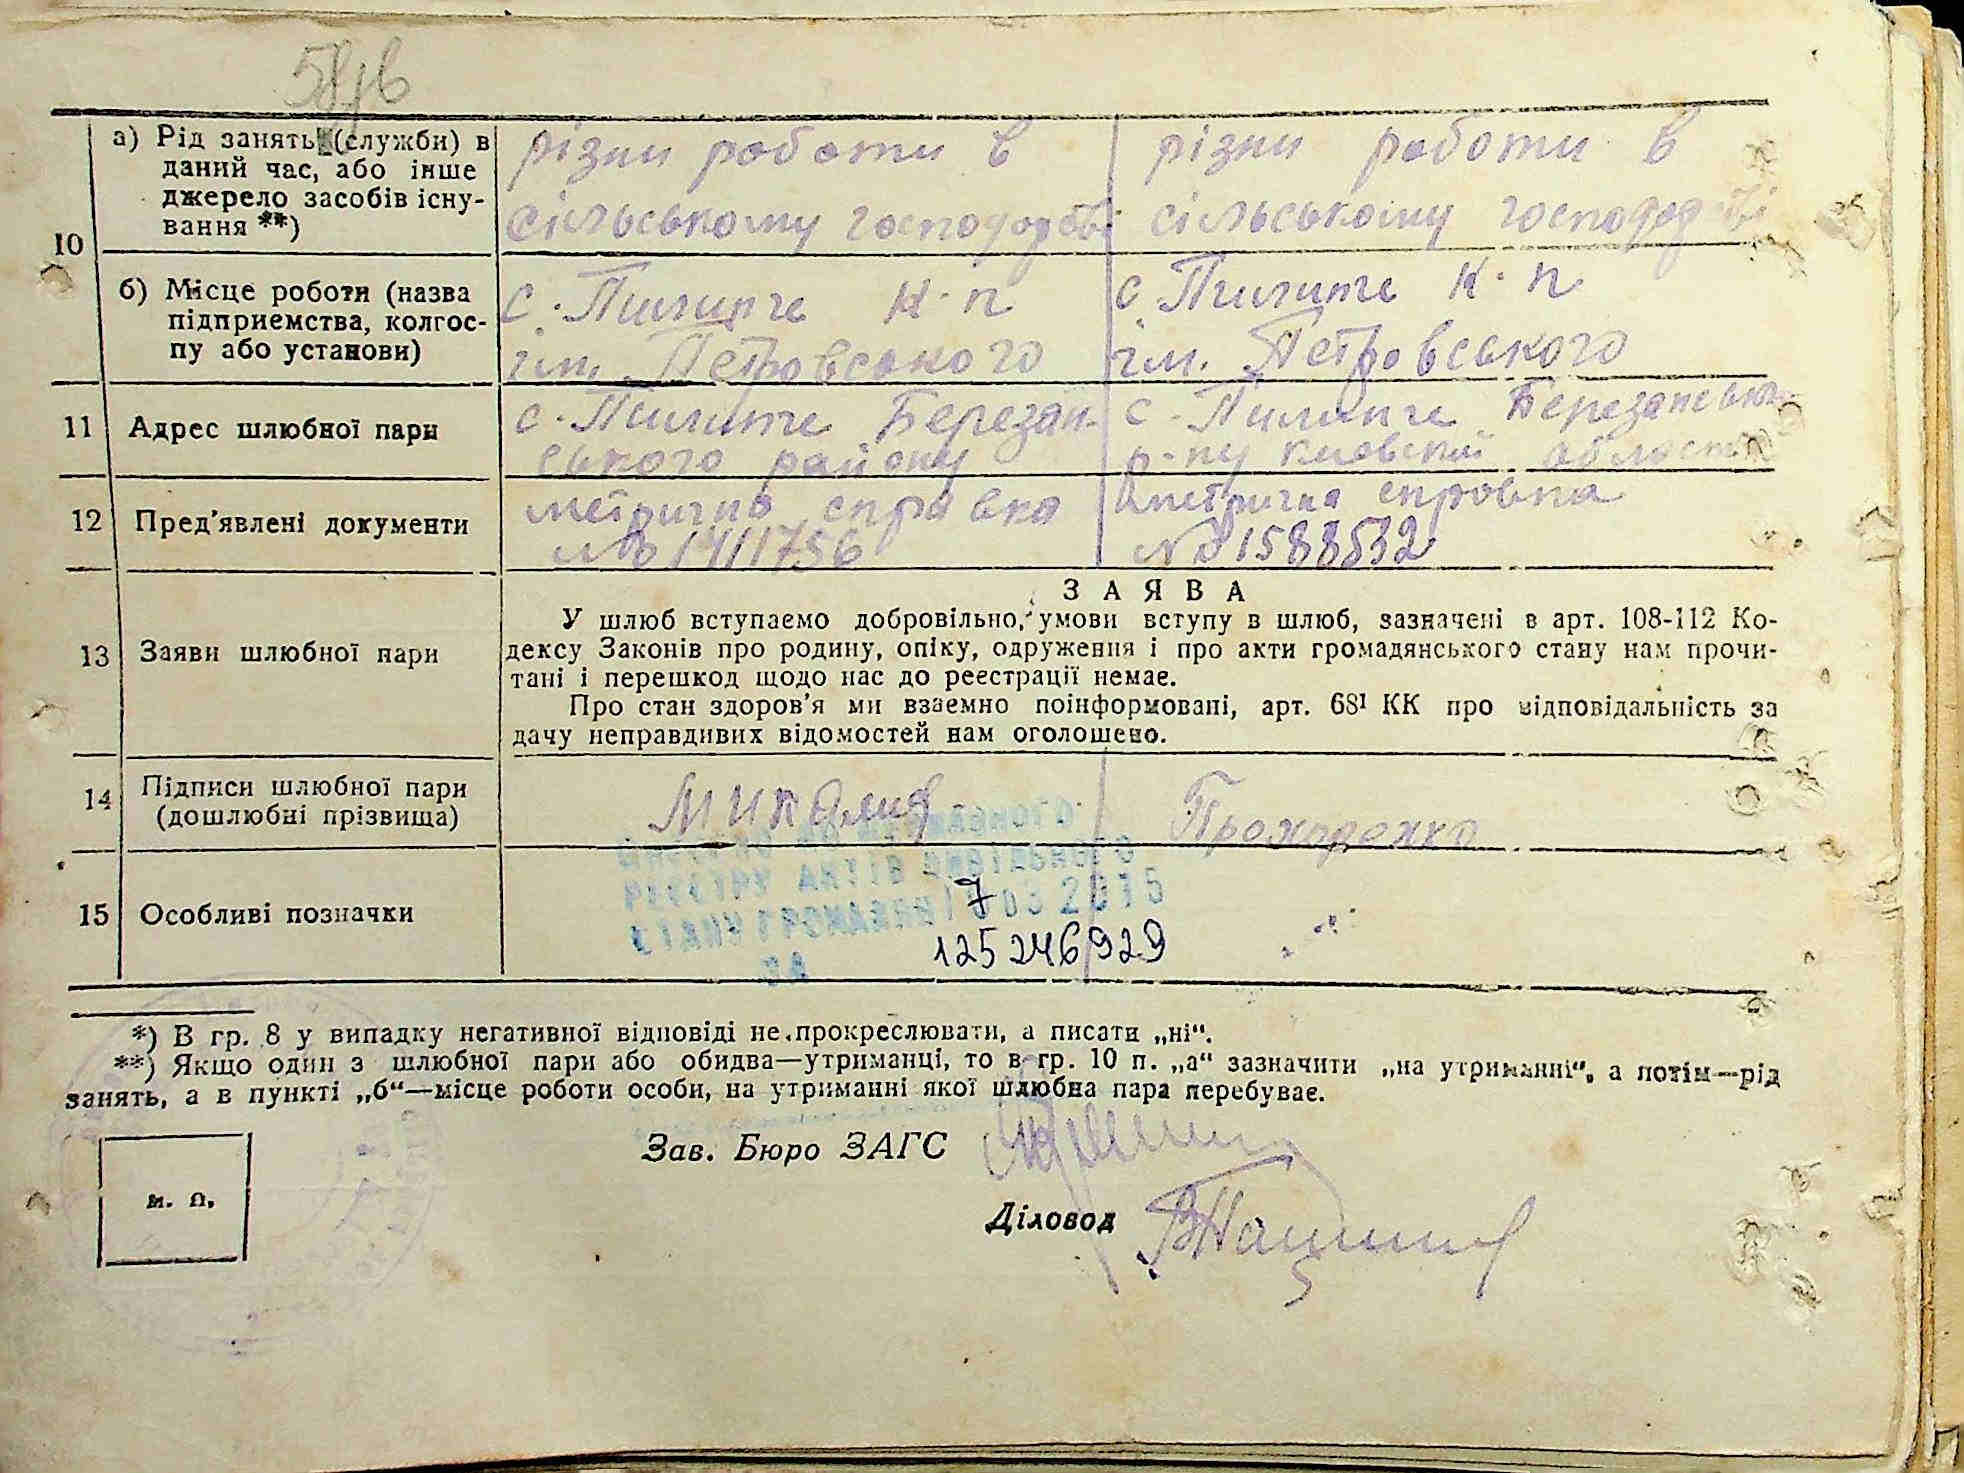 58зв
а) Рід занять (служби) в
даний час, або інше
джерело засобів існу-
вання **)
різни роботи в
сільському господарстві
різни роботи в
сільському господарстві
10
б) Місце роботи (назва
підприємства, колгос-
пу або установи)
с. Пилипче к-п
ім. Петровського
с. Пилипче к-п
ім. Петровського
11 Адрес шлюбної пари
с. Пилипче Березан-
ського району
с. Пилипче Березанськ
р-ну Київской област
12 Пред'явлені документи
метрична справка
№ 1411756
метрична справка
№ 1588532
13 Заяви шлюбної пари
ЗАЯВА
У шлюб вступаємо добровільно, умови вступу в шлюб, зазначені в арт. 108-112 Ко-
дексу Законів про родину, опіку, одруження і про акти громадянського стану нам прочи-
тані і перешкод щодо нас до реєстрації немає.
Про стан здоров'я ми взаємно поінформовані, арт. 68¹ КК про відповідальність за
дачу неправдивих відомостей нам оголошено.
14 Підписи шлюбної пари
(дошлюбні прізвища)
Прохоренко
ВНЕСЕНО ДО ДЕРЖАВНОГО
РЕЄСТРУ АКТІВ ЦИВІЛЬНОГО
СТАНУ ГРОМАДЯН 03 2015
ЗА
7
125246929
15 Особливі позначки
*) В гр. 8 у випадку негативної відповіді не прокреслювати, а писати „ні“.
**) Якщо один з шлюбної пари або обидва—утриманці, то в гр. 10 п. „а“ зазначити „на утриманні“, а потім—рід
занять, а в пункті „б“—місце роботи особи, на утриманні якої шлюбна пара перебуває.
Зав. Бюро ЗАГС
м. п.
Діловод